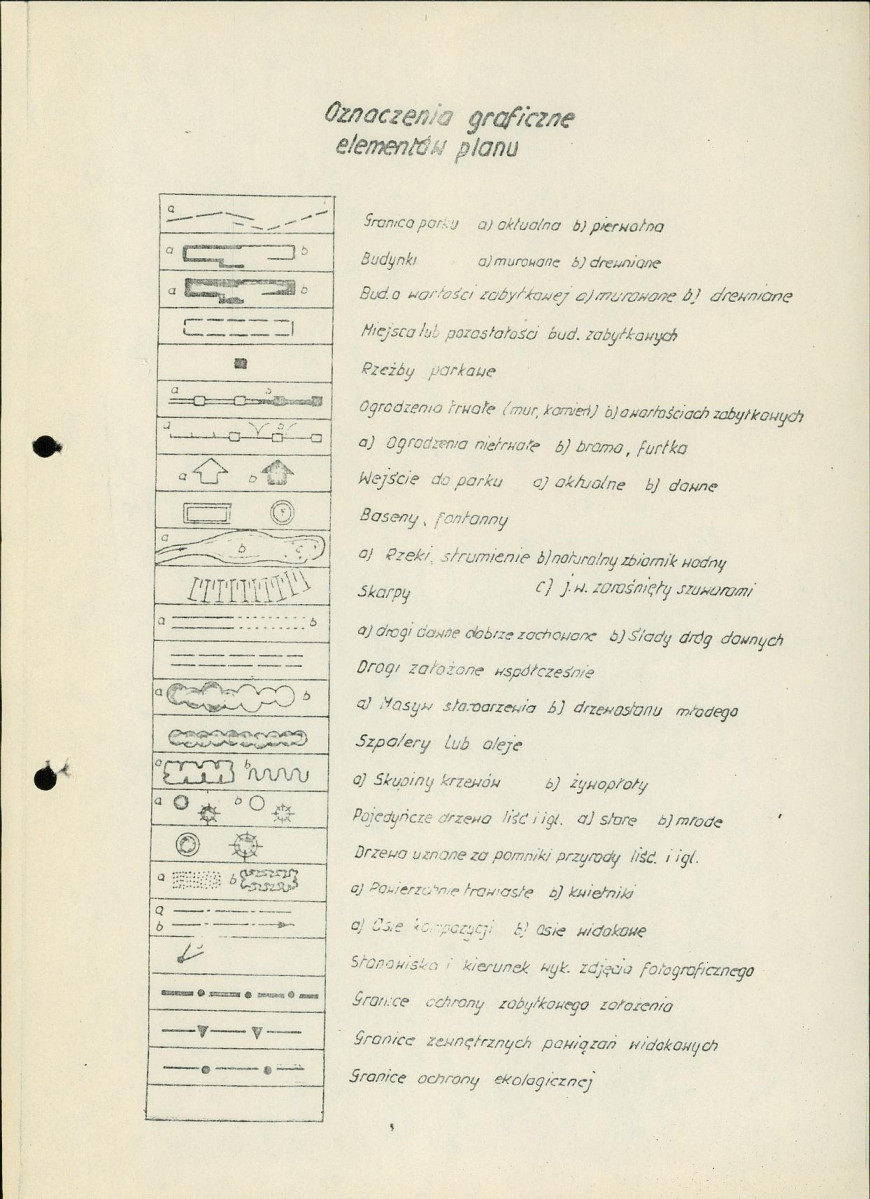 Oznaczenia graficzne
elementów planu
a
Granica parku a) aktualna b) pierwotna
a b
Budynki a) murowane b) drewniane
a b
Bud. o wartości zabytkowej a) murowane b) drewniane
Miejsca lub pozostałości bud. zabytkowych
Rzeźby parkowe
a b
Ogrodzenia trwałe (mur, kamień) b) o wartościach zabytkowych
a b
a) Ogrodzenia nietrwałe b) brama, furtka
a b
Wejście do parku a) aktualne b) dawne
Baseny, fontanny
a b c
a) Rzeki, strumienie b) naturalny zbiornik wodny
Skarpy c) j.w. zarośnięty szuwarami
a b
a) drogi dawne dobrze zachowane b) Ślady dróg dawnych
Drogi założone współcześnie
a b
a) Masyw starodrzewia b) drzewostanu młodego
Szpalery lub aleje
a b
a) Skupiny krzewów b) żywopłoty
a b
Pojedyńcze drzewa liść i igl. a) stare b) młode
Drzewa uznane za pomniki przyrody liść. i igl.
a b
a) Powierzchnie trawiaste b) kwietniki
a
b
a) Osie kompozycji b) Osie widokowe
Stanowiska i kierunek wyk. zdjęcia fotograficznego
Granice ochrony zabytkowego założenia
Granice zewnętrznych powiązań widokowych
Granice ochrony ekologicznej